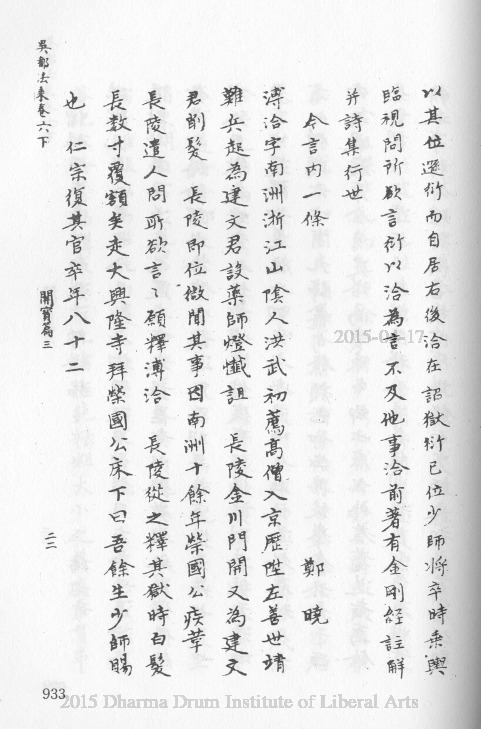 以其位遜衍而自居右後洽在詔獄衍已位少師將卒時乗輿
臨視問所欲言衍以洽為言不及他事洽前著有金剛經註解
并詩集行世
今言内一條　鄭曉
溥洽字南洲浙江山陰人洪武初薦髙僧入京歴陞左善世靖
難兵起為建文君設藥師燈懺詛　長陵金川門開又為建文
君削髮　長陵即位微聞其事囚南洲十餘年榮國公疾革
長陵遣人問所欲言言願釋溥洽　長陵從之釋其獄時白髮
長数寸覆額矣走大興隆寺拜榮國公床下曰吾餘生少師賜
也　仁宗復其官卒年八十二
吳都法乗卷六下
開寶篇三
二二
933
2015-04-17
2015 Dharma Drum Institute of Liberal Arts